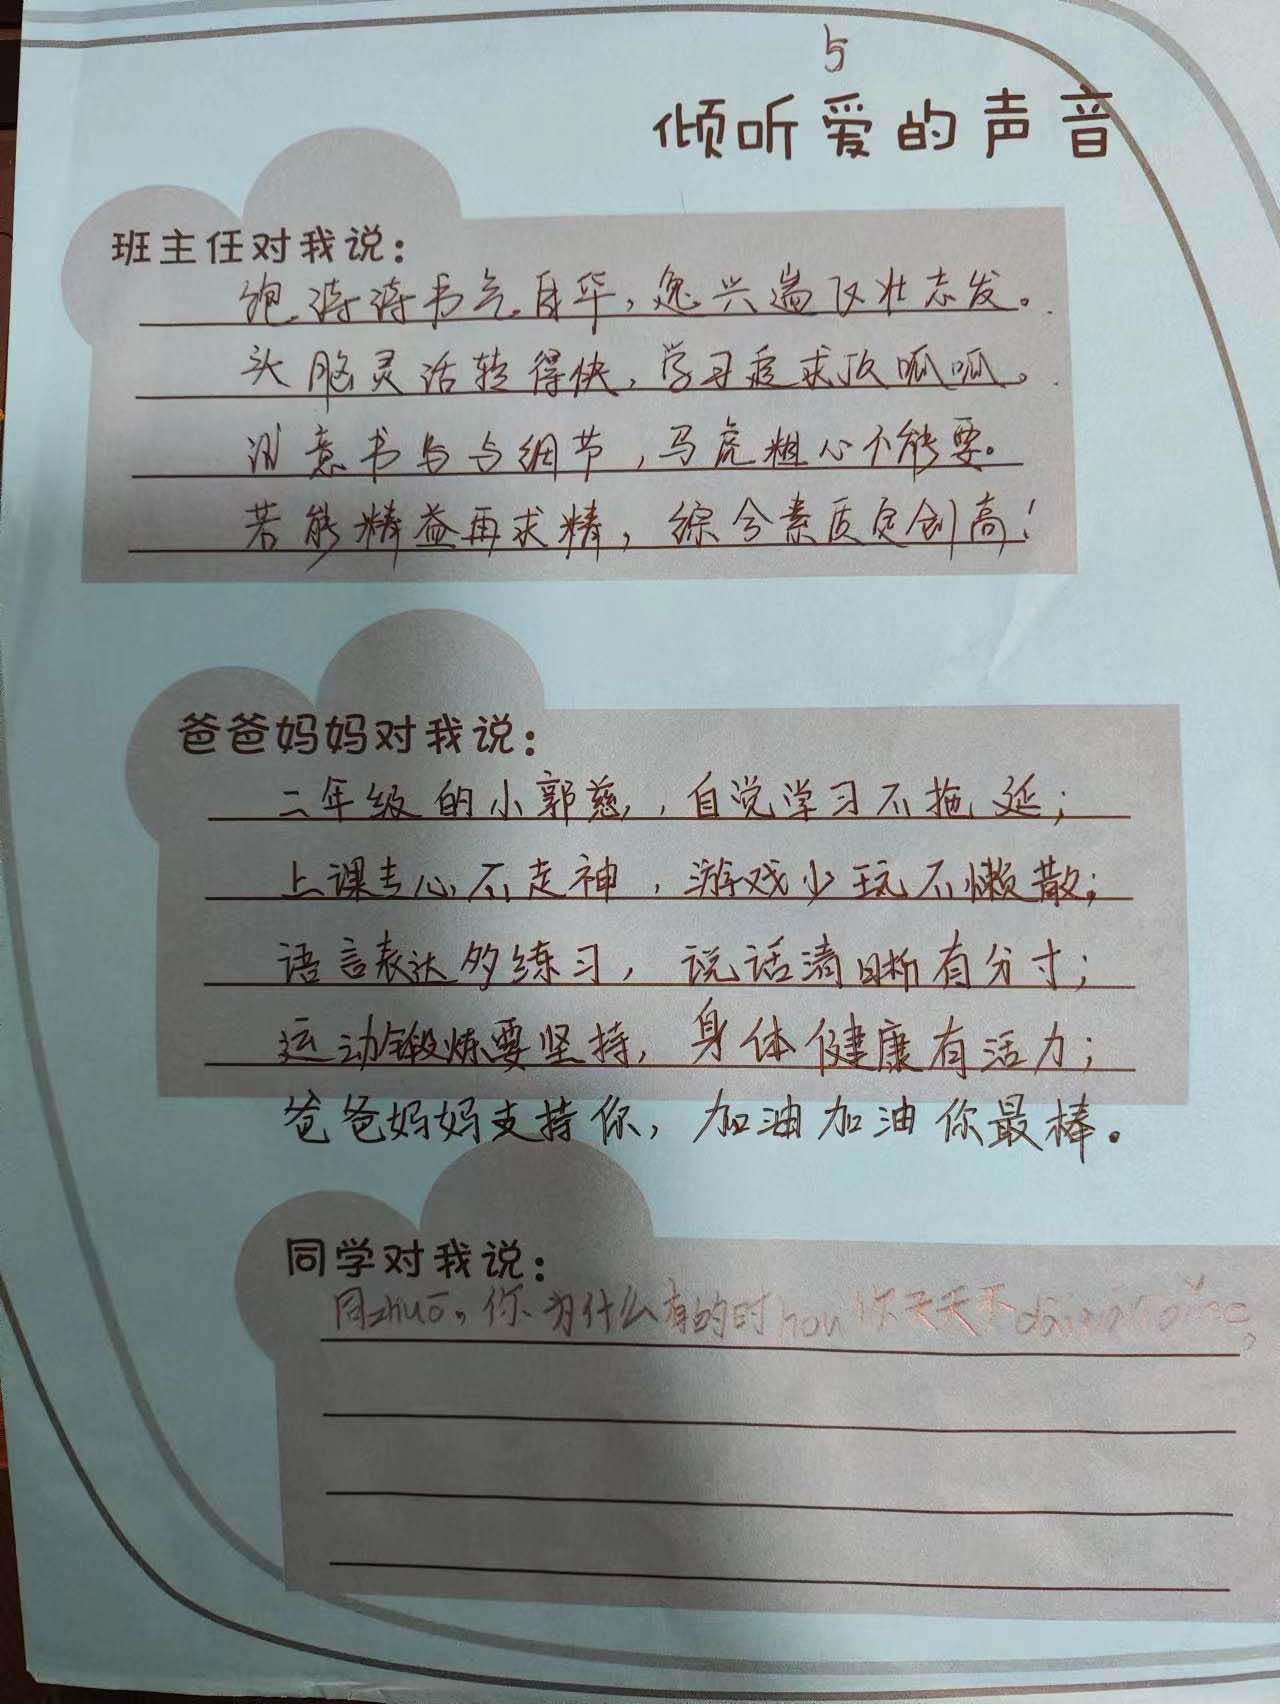 与
倾听爱的声音
班主任对我说：
饱读诗书气自华，逸兴遄飞壮志发。
头脑灵活转得快，学习要求顶呱呱。
注意书写与细节，马虎粗心不能要。
若能精益再求精，综合素质定创高！
爸爸妈妈对我说：
二年级的小郭慈，自觉学习不拖延；
上课专心不走神，游戏少玩不懒散；
语言表达多练习，说话清晰有分寸；
运动锻炼要坚持，身体健康有活力；
爸爸妈妈支持你，加油加油你最棒。
同学对我说：
同zhuō。你为什么有的时hou你天天不